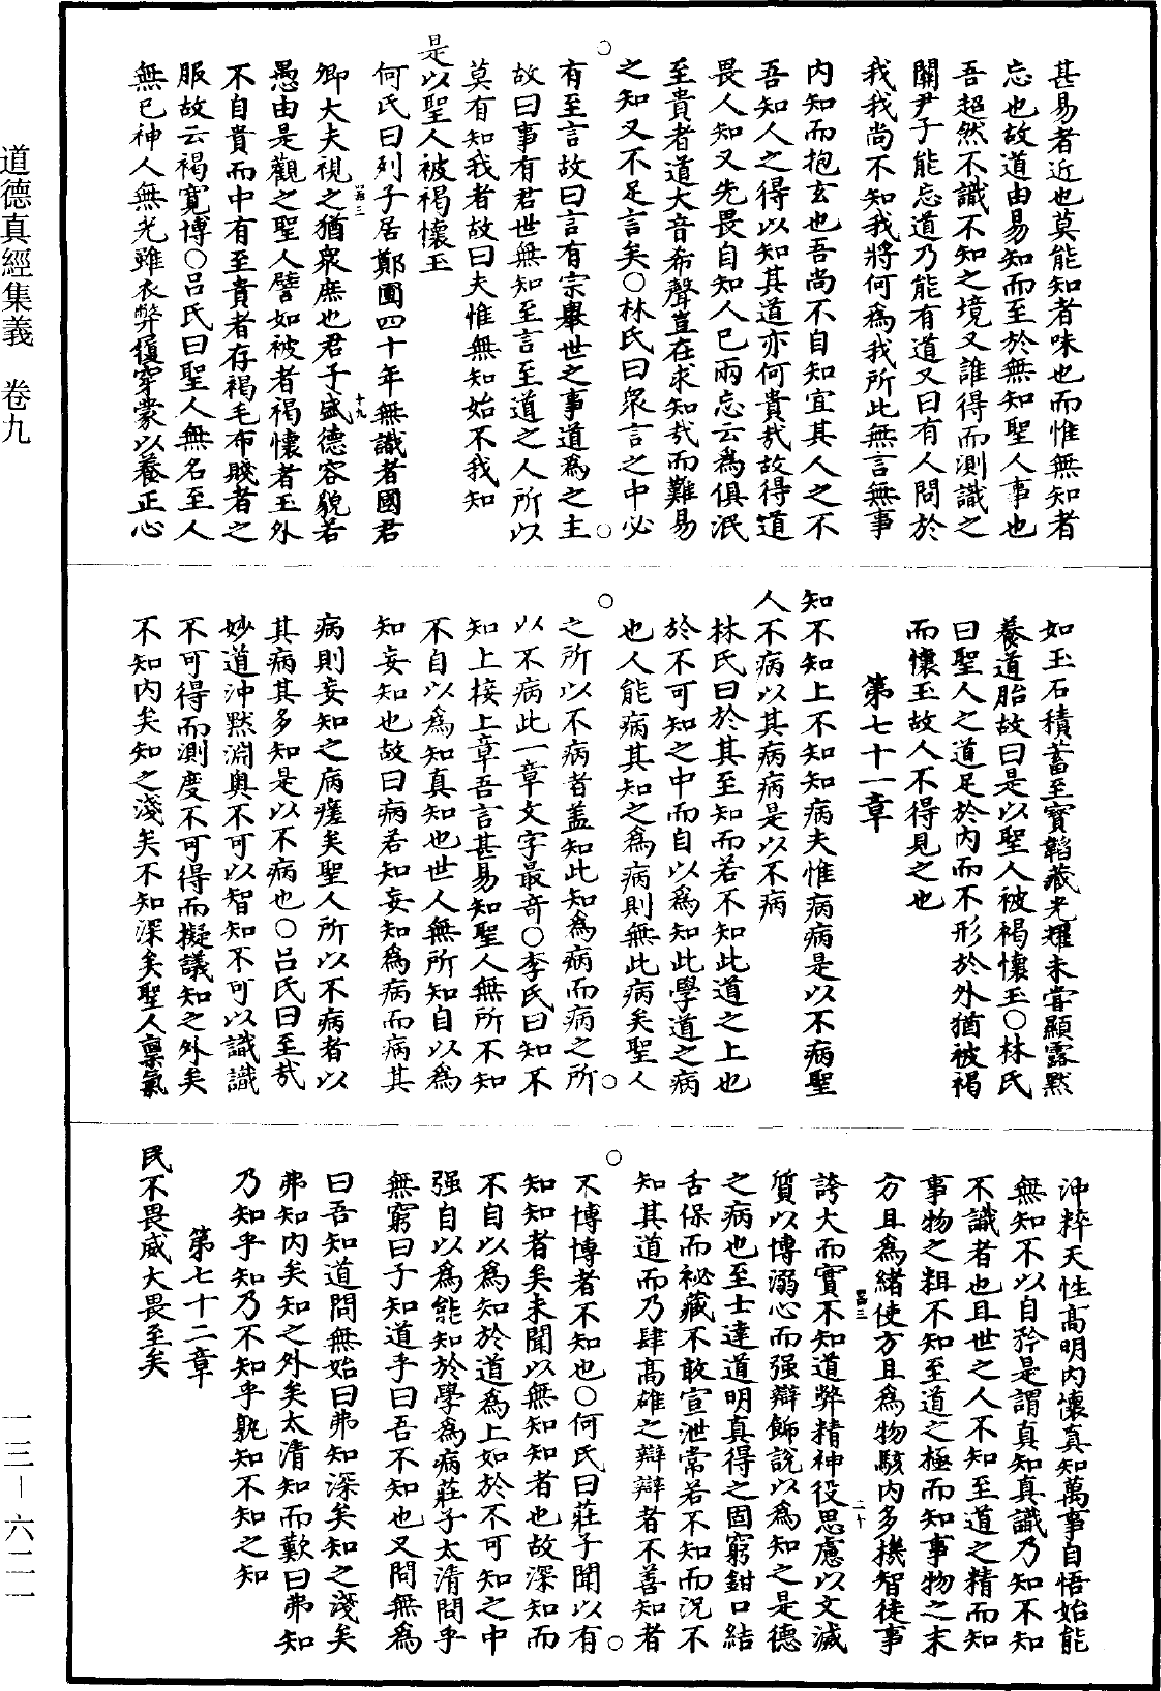 道德真經集義 卷九
甚易者近也莫能知者昧也而惟無知者
忘也故道由易知而至於無知聖人事也
吾超然不識不知之境又誰得而測識之
關尹子能忘道乃能有道又曰有人問於
我我尚不知我將何為我所此無言無事
內知而抱玄也吾尚不自知宜其人之不
吾知人之得以知其道亦何貴哉故得道
畏人知又先畏自知人已兩忘云為俱泯
至貴者道大音希聲豈在求知哉而難易
之知又不足言矣○林氏曰眾言之中必
有至言故曰言有宗舉世之事道為之主
故曰事有君世無知至言至道之人所以
莫有知我者故曰夫惟無知始不我知
是以聖人被褐懷玉
何氏曰列子居鄭圃四十年無識者國君
卿大夫視之猶眾庶也君子盛德容貌若
愚由是觀之聖人譬如被者褐懷者玉外
不自貴而中有至貴者存褐毛布賤者之
服故云褐寬博○呂氏曰聖人無名至人
無已神人無光雖衣弊履穿蒙以養正心
十九
如玉石積蓄至寶韜藏光耀未嘗顯露黙
養道胎故曰是以聖人被褐懷玉○林氏
曰聖人之道足於內而不形於外猶被褐
而懷玉故人不得見之也
第七十一章
知不知上不知知病夫惟病病是以不病聖
人不病以其病病是以不病
林氏曰於其至知而若不知此道之上也
於不可知之中而自以為知此學道之病
也人能病其知之為病則無此病矣聖人
之所以不病者蓋知此知為病而病之所
以不病此一章文字最奇○李氏曰知不
知上接上章吾言甚易知聖人無所不知
不自以為知真知也世人無所知自以為
知妄知也故曰病若知妄知為病而病其
病則妄知之病瘥矣聖人所以不病者以
其病其多知是以不病也○呂氏曰至哉
妙道沖黙淵奧不可以智知不可以識識
不可得而測度不可得而擬議知之外矣
不知內矣知之淺矣不知深矣聖人稟氣
沖粹天性高明內懷真知萬事自悟始能
無知不以自矜是謂真知真識乃知不知
不識者也且世之人不知至道之精而知
事物之粗不知至道之極而知事物之末
方且為緒使方且為物駭內多機智徒事
二十
誇大而實不知道弊精神役思慮以文滅
質以博溺心而强辯飾說以為知之是德
之病也至士達道明真得之固窮鉗口結
舌保而祕藏不敢宣泄常若不知而況不
知其道而乃肆高雄之辯辯者不善知者
不博博者不知也○何氏曰莊子聞以有
知知者矣未聞以無知知者也故深知而
不自以為知於道為上如於不可知之中
强自以為能知於學為病莊子太清問乎
無窮曰子知道乎曰吾不知也又問無為
曰吾知道問無始曰弗知深矣知之淺矣
弗知內矣知之外矣太清知而歎曰弗知
乃知乎知乃不知乎孰知不知之知
第七十二章
民不畏威大畏至矣
一三－六二一